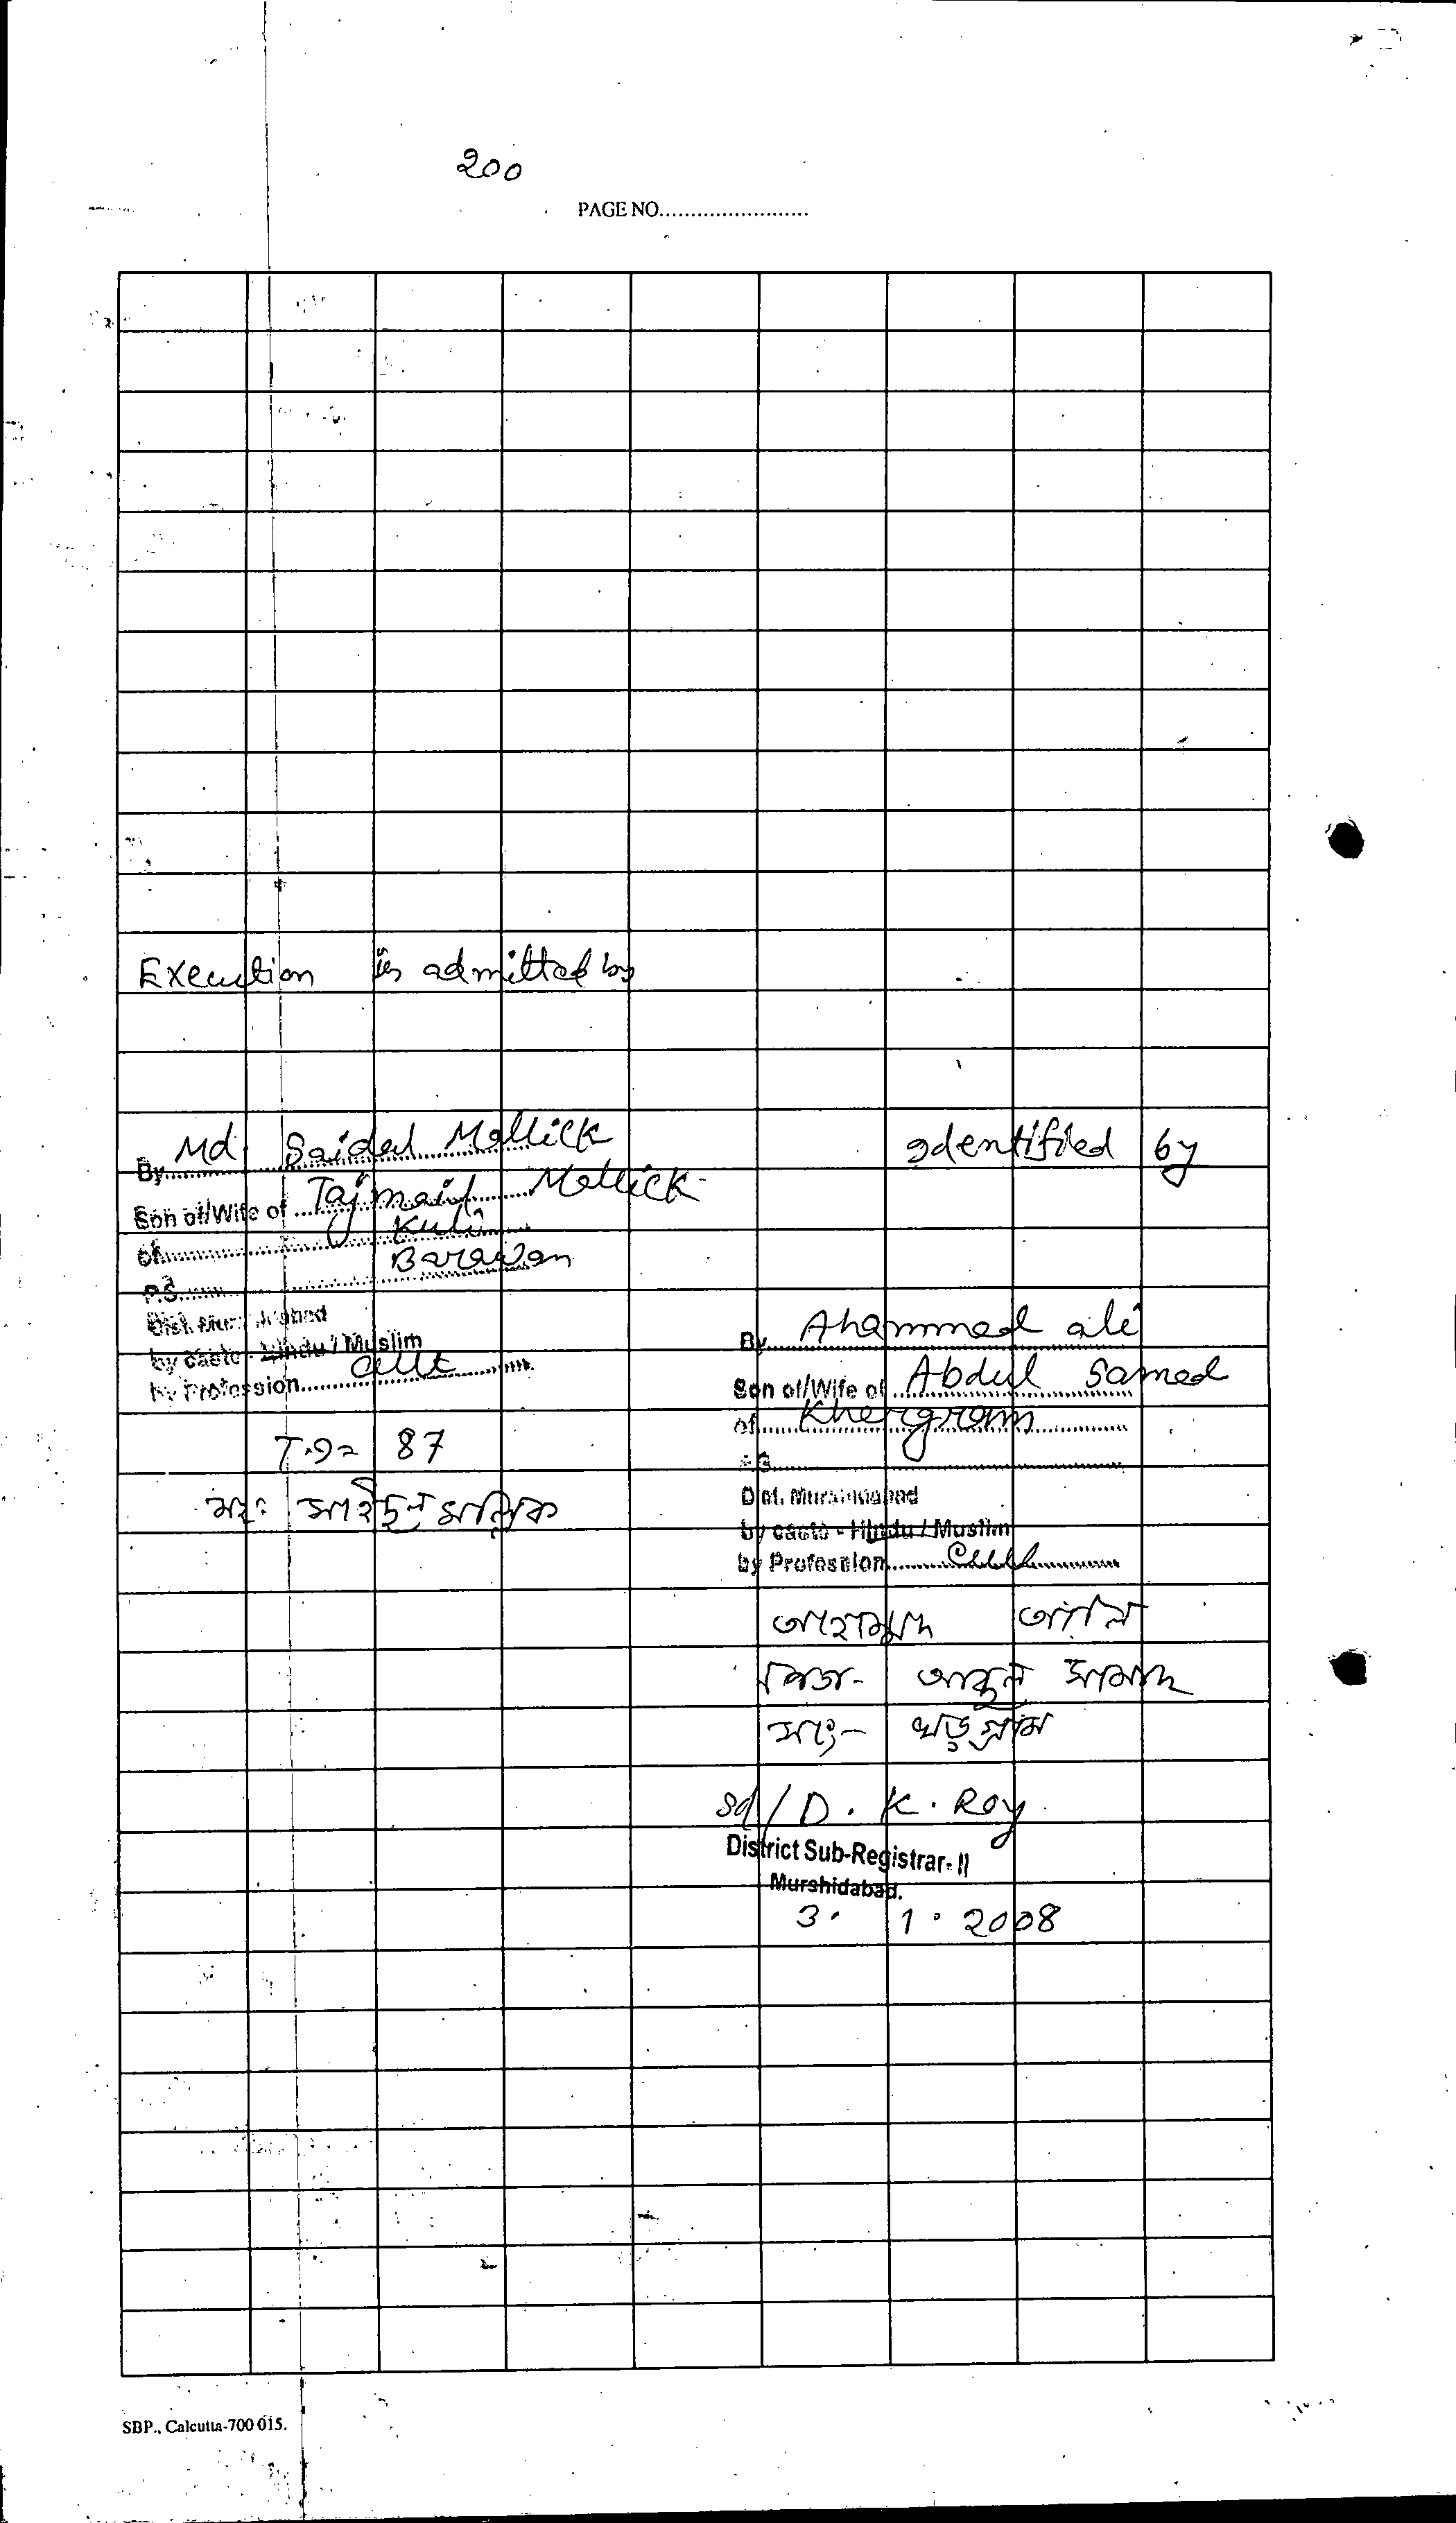 200
PAGE NO.........................
Execution is admitted by
By Md. Saidul Mallick
Son of/Wife of Tajmaid Mallick
of Kuli
P.S. Barawan
Dist. Murshidabad
by caste - Hindu / Muslim
by Profession Cult
T.I= 87
মহ: সাইদুল মল্লিক
Identified by
By Ahammad ali
Son of/Wife of Abdul Samad
of Khergram
P.S.
Dist. Murshidabad
by caste - Hindu / Muslim
by Profession Cult
আহাম্মদ আলি
পিতা- আব্দুল সামাদ
সাং- খড়গ্রাম
Sd/ D. K. Roy
District Sub-Registrar- II
Murshidabad.
3. 1. 2008
SBP., Calcutta-700 015.